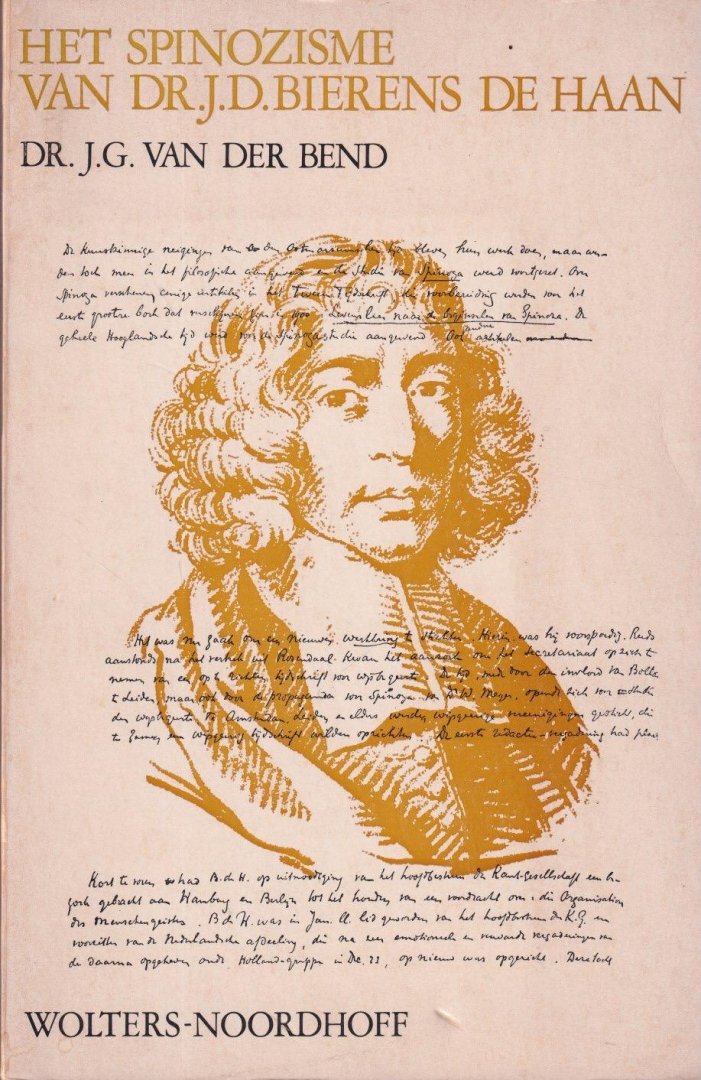 HET SPINOZISME
VAN DR. J.D. BIERENS DE HAAN
DR. J.G. VAN DER BEND
De kunstzinnige neigingen van den bleven hun werk doen, maar
den toch meer in het filosofische en de studie van Spinoza werd voortgezet. Over
Spinoza verschenen eenige artikelen in het Tweem. Tijdschrift die voorbereiding werden voor het
eerste grootere boek dat 1900 Levensleer naar de beginselen van Spinoza. De
geheele Hooglandsche tijd werd voor de Spinozastudie aangewend. Ook andere artikelen
Het was nu zaak om een nieuwen werkkring te stellen. Hierin was hij voorspoedig. Reeds
aanstonds na het vertrek uit Rosendaal kwam het aanzoek om het secretariaat op zich te
nemen van een op te richten tijdschrift van wijsbegeerte. De tijd, mede door den invloed van Bolland
te Leiden, maar ook voor de propaganda van Spinoza van Dr. W. Meyer, opende zich voor
den wijsbegeerte. Te Amsterdam, Leiden en elders werden wijsgeerige vereenigingen gesticht, die
te zamen een wijsgeerig tijdschrift wilden oprichten. De eerste redactie-vergadering had
Kort te voren had B.d.H. op uitnoodiging van het hoofdbestuur der Kant-Gesellschaft een be-
zoek gebracht aan Hamburg en Berlijn tot het houden van een voordracht om: die Organisation
des Menschengeistes. B.d.H. was in Jan. lid geworden van het hoofdbestuur der K.G. en
voorzitter van de Nederlandsche afdeeling, die na een emotioneele en verwarde vergaderingen van
de daarna opgeheven oude Holland-gruppe in Dec. 23, opnieuw was opgericht. Deze
WOLTERS-NOORDHOFF